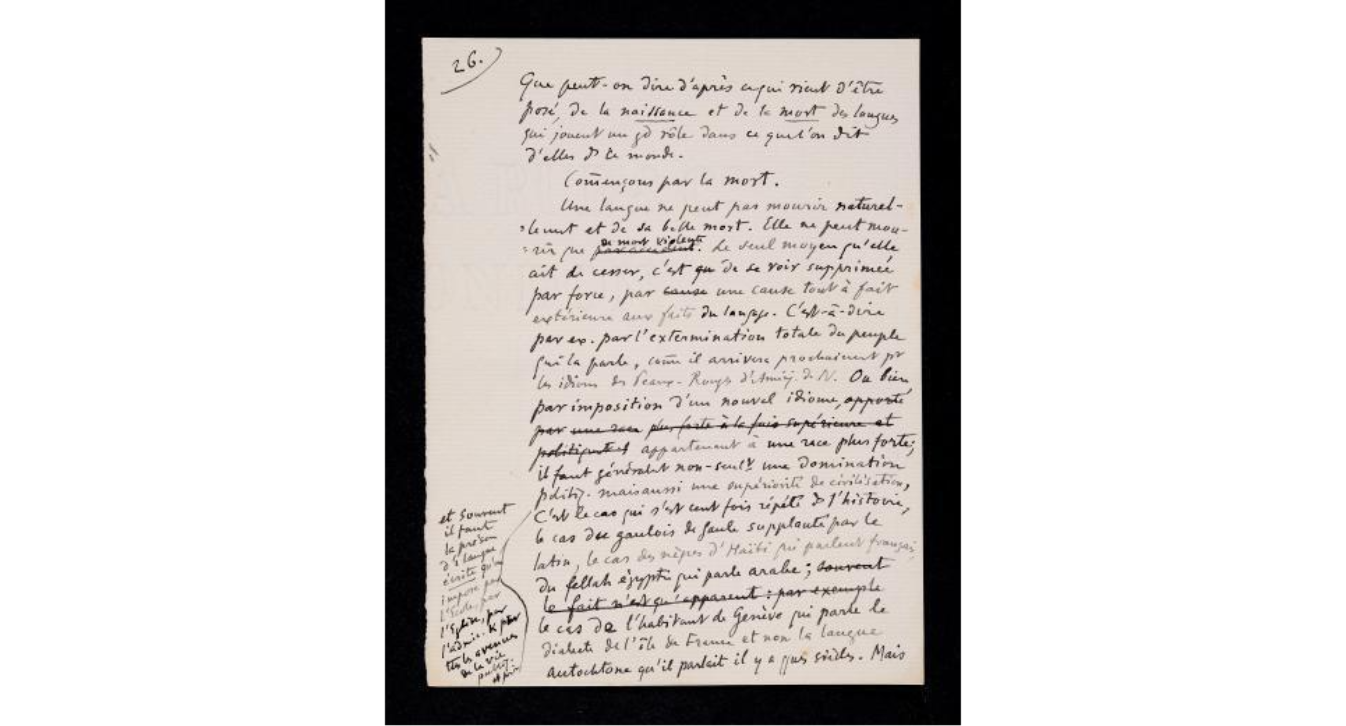 26.
Que peut-on dire d'après ce qui vient d'être
posé, de la naissance et de la mort des langues
qui jouent un gd rôle dans ce que l'on dit
d'elles ds le monde.
Com̄ençons par la mort.
Une langue ne peut pas mourir naturel-
lemt et de sa belle mort. Elle ne peut mou-
rir que par accident. de mort violente. Le seul moyen qu'elle
ait de cesser, c'est que de se voir supprimée
par force, par cause une cause tout à fait
extérieure aux faits du langage. C'est-à-dire
par ex. par l'extermination totale du peuple
qui la parle, com̄e il arrivera prochainement pr
les idiomes des Peaux-Rouges d'Amériq. du N. Ou bien
par imposition d'un nouvel idiome, apporté
par une race plus forte à la fois supérieure et
politiquemt appartenant à une race plus forte;
il faut généralemt non-seulᵗ une domination
politiq. mais aussi une supériorité de civilisation,
C'est le cas qui s'est cent fois répété ds l'histoire,
le cas du gaulois de Gaule supplanté par le
latin, le cas des nègres d'Haïti qui parlent français,
du fellah égyptn qui parle arabe; souvent
le fait n'est qu'apparent : par exemple
le cas de l'habitant de Genève qui parle le
dialecte de l'île de France et non la langue
autochtone qu'il parlait il y a qques siècles. Mais
et souvent
il faut
la présen
d'1 langue
écrite qu'on
impose par
l'Ecole, par
l'Eglise, par
l'admin. &
tts les avenues
de la vie
publiq.